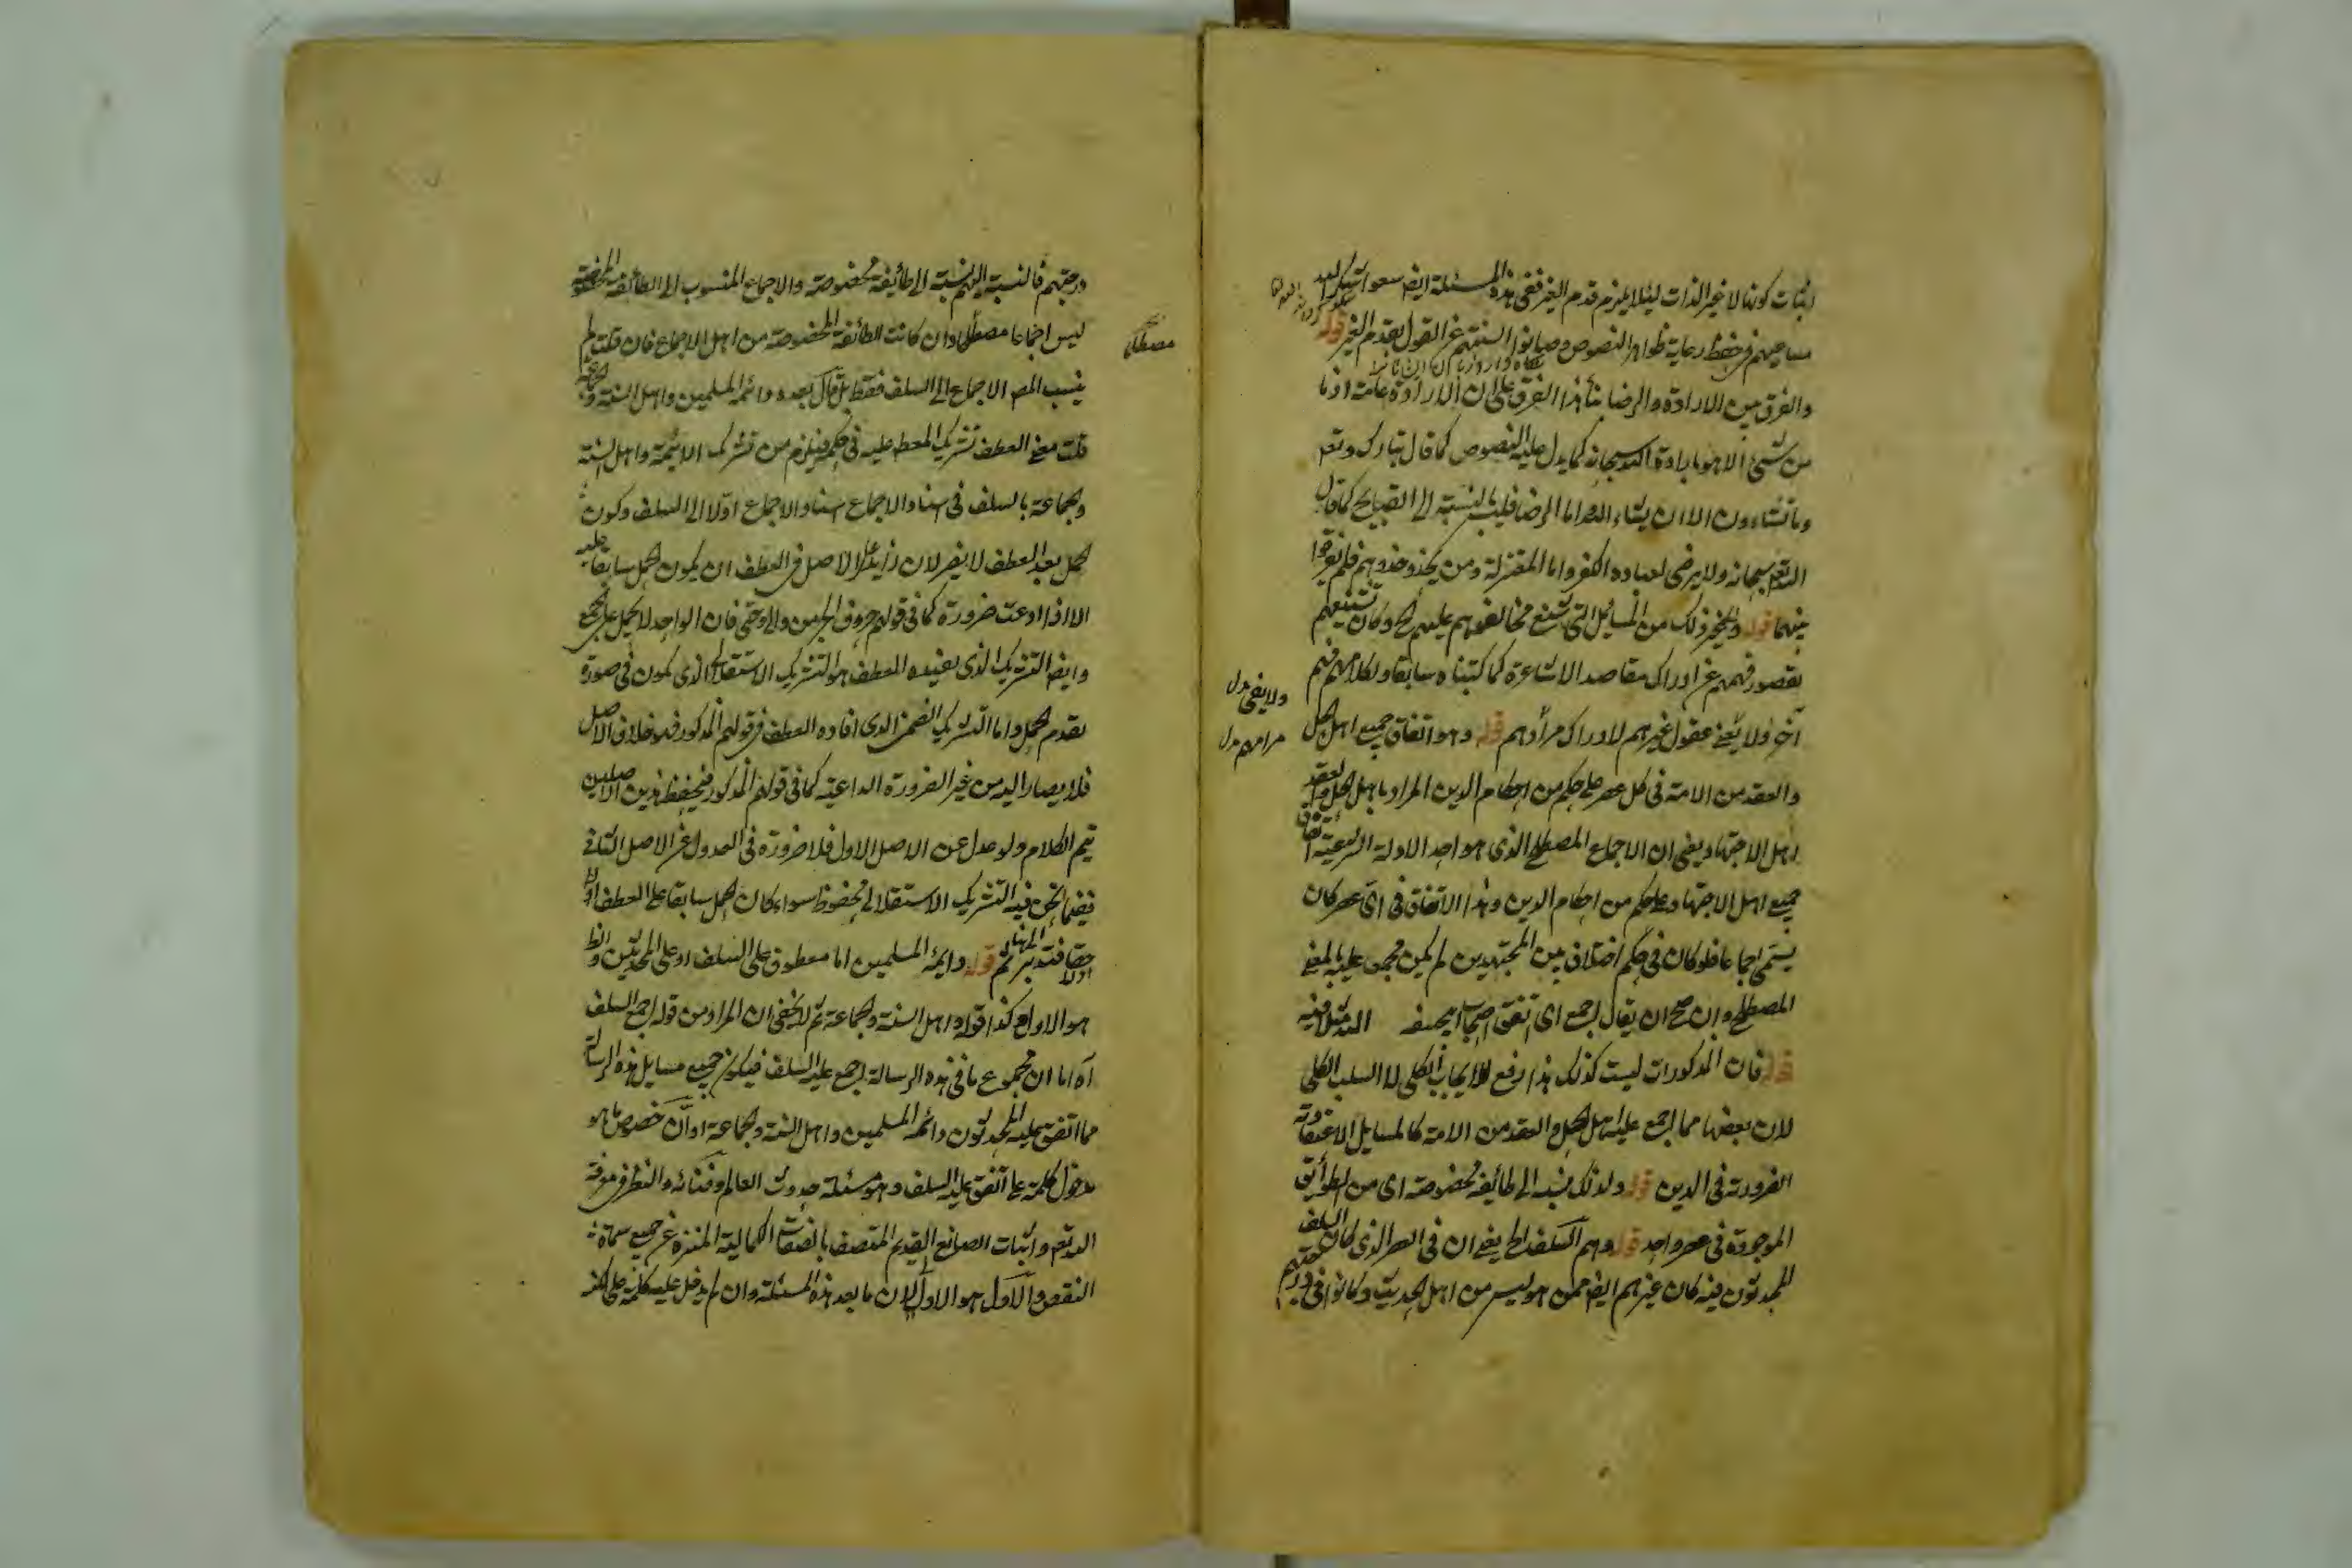 اثبات كونها لا غير الذات لئلا يلزم قدم الغير ففي هذه المسئلة ايضا سعوا
مساعيهم في حفظ رعاية ظواهر النصوص وصانوا السنتهم عن القول بقدم الغير قوله
والفرق بين الارادة والرضا بناء هذا الفرق على ان الارادة عامة اذ ما
من شيئ الا هو بارادة الله سبحانه كما يدل عليه النصوص كما قال تبارك وتعم
وما تشاءون الا ان يشاء الله اما الرضا فليس بالنسبة الى القبايح كما قال
الله تعم سبحانه ولا يرضى لعباده الكفر واما المعتزلة ومن يحذو حذوهم فلم يفرقوا
بينهما قوله ونحو ذلك من المسايل التى تشنع مخالفوهم عليهم الخ وكان تشنيعهم
بقصور فهمهم عن ادراك مقاصد الاشاعرة كما كتبناه سابقا ولكلامهم فهم
آخر ولا يفى عقول غيرهم لادراك مرادهم قوله وهو اتفاق جميع اهل الحل
ولا يفى بدل
مرامهم بدل
والعقد من الامة في كل عصر على حكم من احكام الدين المراد باهل الحل والعقد
اهل الاجتهاد يعنى ان الاجماع المصطلح الذى هو احد الادلة الشرعية اتفاق
جميع اهل الاجتهاد على حكم من احكام الدين وهذا الاتفاق في اى عصر كان
يسمى اجماعا فلو كان في حكم اختلاف بين المجتهدين لم يكن مجمع عليه بالمعنى
المصطلح وان صح ان يقال اجمع اى اتفق اصحاب ابيحنيفه الله مثلا فيه
قوله فان المذكورات ليست كذلك هذا رفع للايجاب الكلى لا السلب الكلى
لان بعضها مما اجمع عليه اهل الحل والعقد من الامة كالمسايل الاعتقادية
الضرورية في الدين قوله ولذلك نسبه الى طائفة مخصوصة اى من الطوائف
الموجودة في عصر واحد قوله وهم السلف الخ يعنى ان في العصر الذى كان السلف
المحدثون فيه كان غيرهم ايضا ممن هو ليس من اهل الحديث وكانوا في
درجتهم فالنسبة اليهم نسبة الى طائفة مخصوصة والاجماع المنسوب الى الطائفة المخصوصة
ليس اجماعا مصطلحا وان كانت الطائفة المخصوصة من اهل الاجماع فان قلت لم
ينسب المص الاجماع الى السلف فقط بل قال بعده وائمة المسلمين واهل السنة والجماعة
قلت معنى العطف تشريك المعط عليه في حكمه فيلزم من تشريك الائمة واهل السنة
والجماعة بالسلف في اسناد الاجماع اسناد الاجماع اولا الى السلف وكون
الحمل بعد العطف لا يضر لان الاصل في العطف ان يكون الحمل سابقا عليه
الا اذا ادعت ضرورة كما في قولهم حروف الجر من والى وحتى فان الواحد لا يحمل على الجمع
وايضا التشريك الذى يفيده العطف هو التشريك الاستقلالى الذى يكون في صورة
تقدم الحمل واما التشريك الضمنى الذى افاده العطف في قولهم المذكور فهو خلاف الاصل
فلا يصار اليه من غير الضرورة الداعية كما في قولهم المذكور فيحفظ هذين الاصلين
تيم الكلام ولو عدل عن الاصل الاول فلا ضرورة في العدول عن الاصل الثانى
ففيما نحن فيه التشريك الاستقلالى محفوظ سواء كان الحمل سابقا على العطف اولا
قوله وايمة المسلمين اما معطوف على السلف او على المحدثين والظ
هو الاول وكذا قوله واهل السنة والجماعة ثم لا يخفى ان المراد من قوله اجمع السلف
آه اما ان مجموع ما في هذه الرسالة اجمع عليه السلف فيكون جميع مسايل هذه الرسالة
مما اتفق عليه المحدثون وائمة المسلمين واهل السنة والجماعة او ان خصوص ما هو
مدخول كلمة على اتفق عليه السلف وهو مسئلة حدوث العالم وفنائه والنظر في معرفة
الله تعم واثبات الصانع القديم المتصف بالصفات الكمالية المنزه عن جميع سماة
النقص والاول هو الاول لان ما بعد هذه المسئلة وان لم يدخل عليه كلمة على لكنه